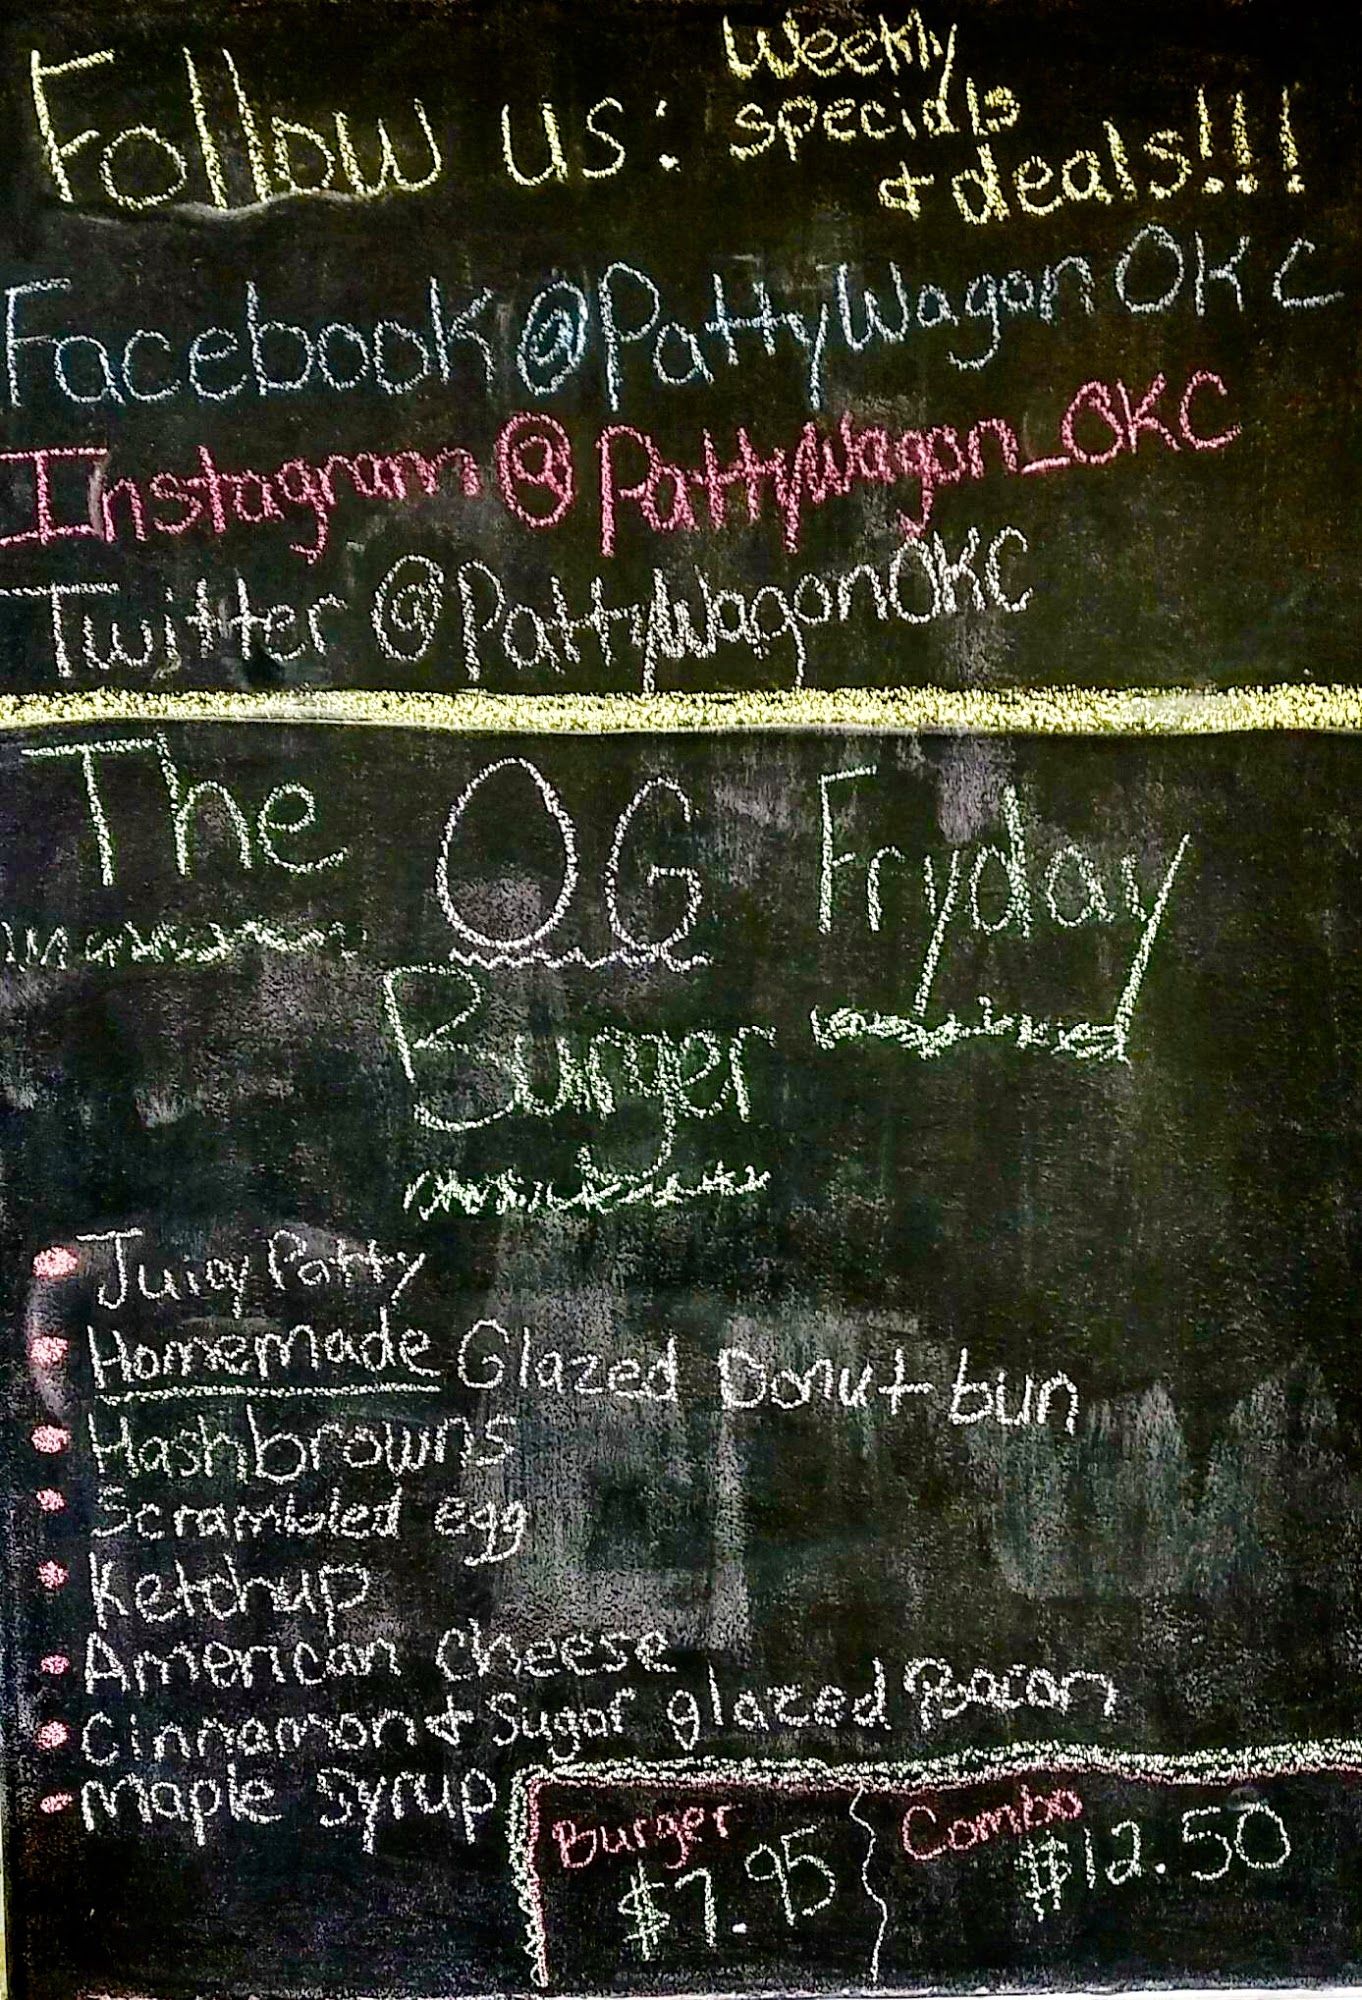 Follow us: Weekly
specials
+ deals!!!
Facebook @PattyWagonOKC
Instagram @PattyWagon_OKC
Twitter @PattyWagonOKC
The OG Fryday
Burger
Juicy Patty
Homemade Glazed Donut bun
Hashbrowns
Scrambled egg
Ketchup
American cheese
Cinnamon + Sugar glazed Bacon
Maple syrup
Burger
$7.95
Combo
$12.50